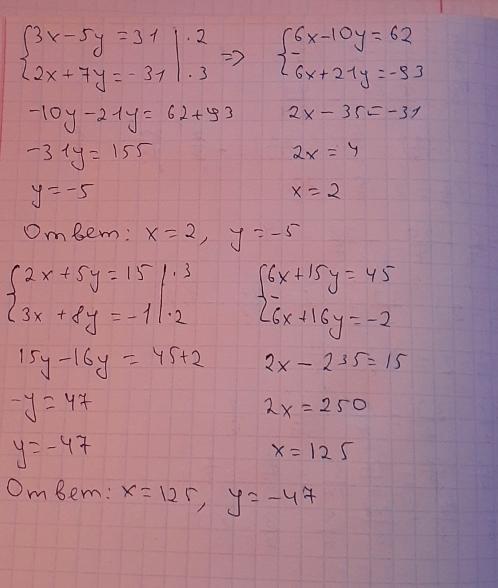 {3x-5y=31 |·2 => {6x-10y=62
{2x+7y=-31 |·3 {6x+21y=-93
-10y-21y=62+93 2x-35=-31
-31y=155 2x=4
y=-5 x=2
Ответ: x=2, y=-5
{2x+5y=15 |·3 {6x+15y=45
{3x+8y=-1 |·2 {6x+16y=-2
15y-16y=45+2 2x-235=15
-y=47 2x=250
y=-47 x=125
Ответ: x=125, y=-47